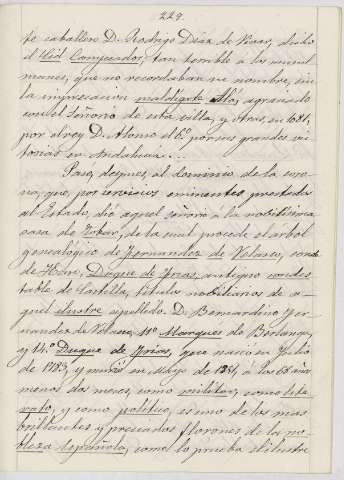 229.
te caballero D. Rodrigo Diaz de Vivar, dicho
el Cid Campeador, tan terrible á los musul
manes, que no recordaban su nombre, sin
la imprecacion maldígate Alá, agraciado
con el Señorío de esta villa, y otras, en 1081,
por el rey D. Alonso el 6º por sus grandes vic
torias en Andalucia...
Pasó, despues, al dominio de la coro
na; que, por servicios eminentes prestados
al Estado, dió aquel señorío á la nobilísima
casa de Tobar, de la cual procede el árbol
genealógico de Fernandez de Velasco, conde
de Haro, Duque de Frias, antiguo condes
table de Castilla, títulos nobiliarios de a-
quel ilustre apellido. D. Bernardino Fer
nandez de Velasco, Marques de Berlanga,
y 14.º Duque de Frias, que nació en Julio
de 1783, y murió en Mayo de 1851, á los 68 años
menos dos meses, como militar, como lite
rato, y como político, es uno de los mas
brillantes y preciados florones de la no-
bleza española; como lo prueba el ilustre